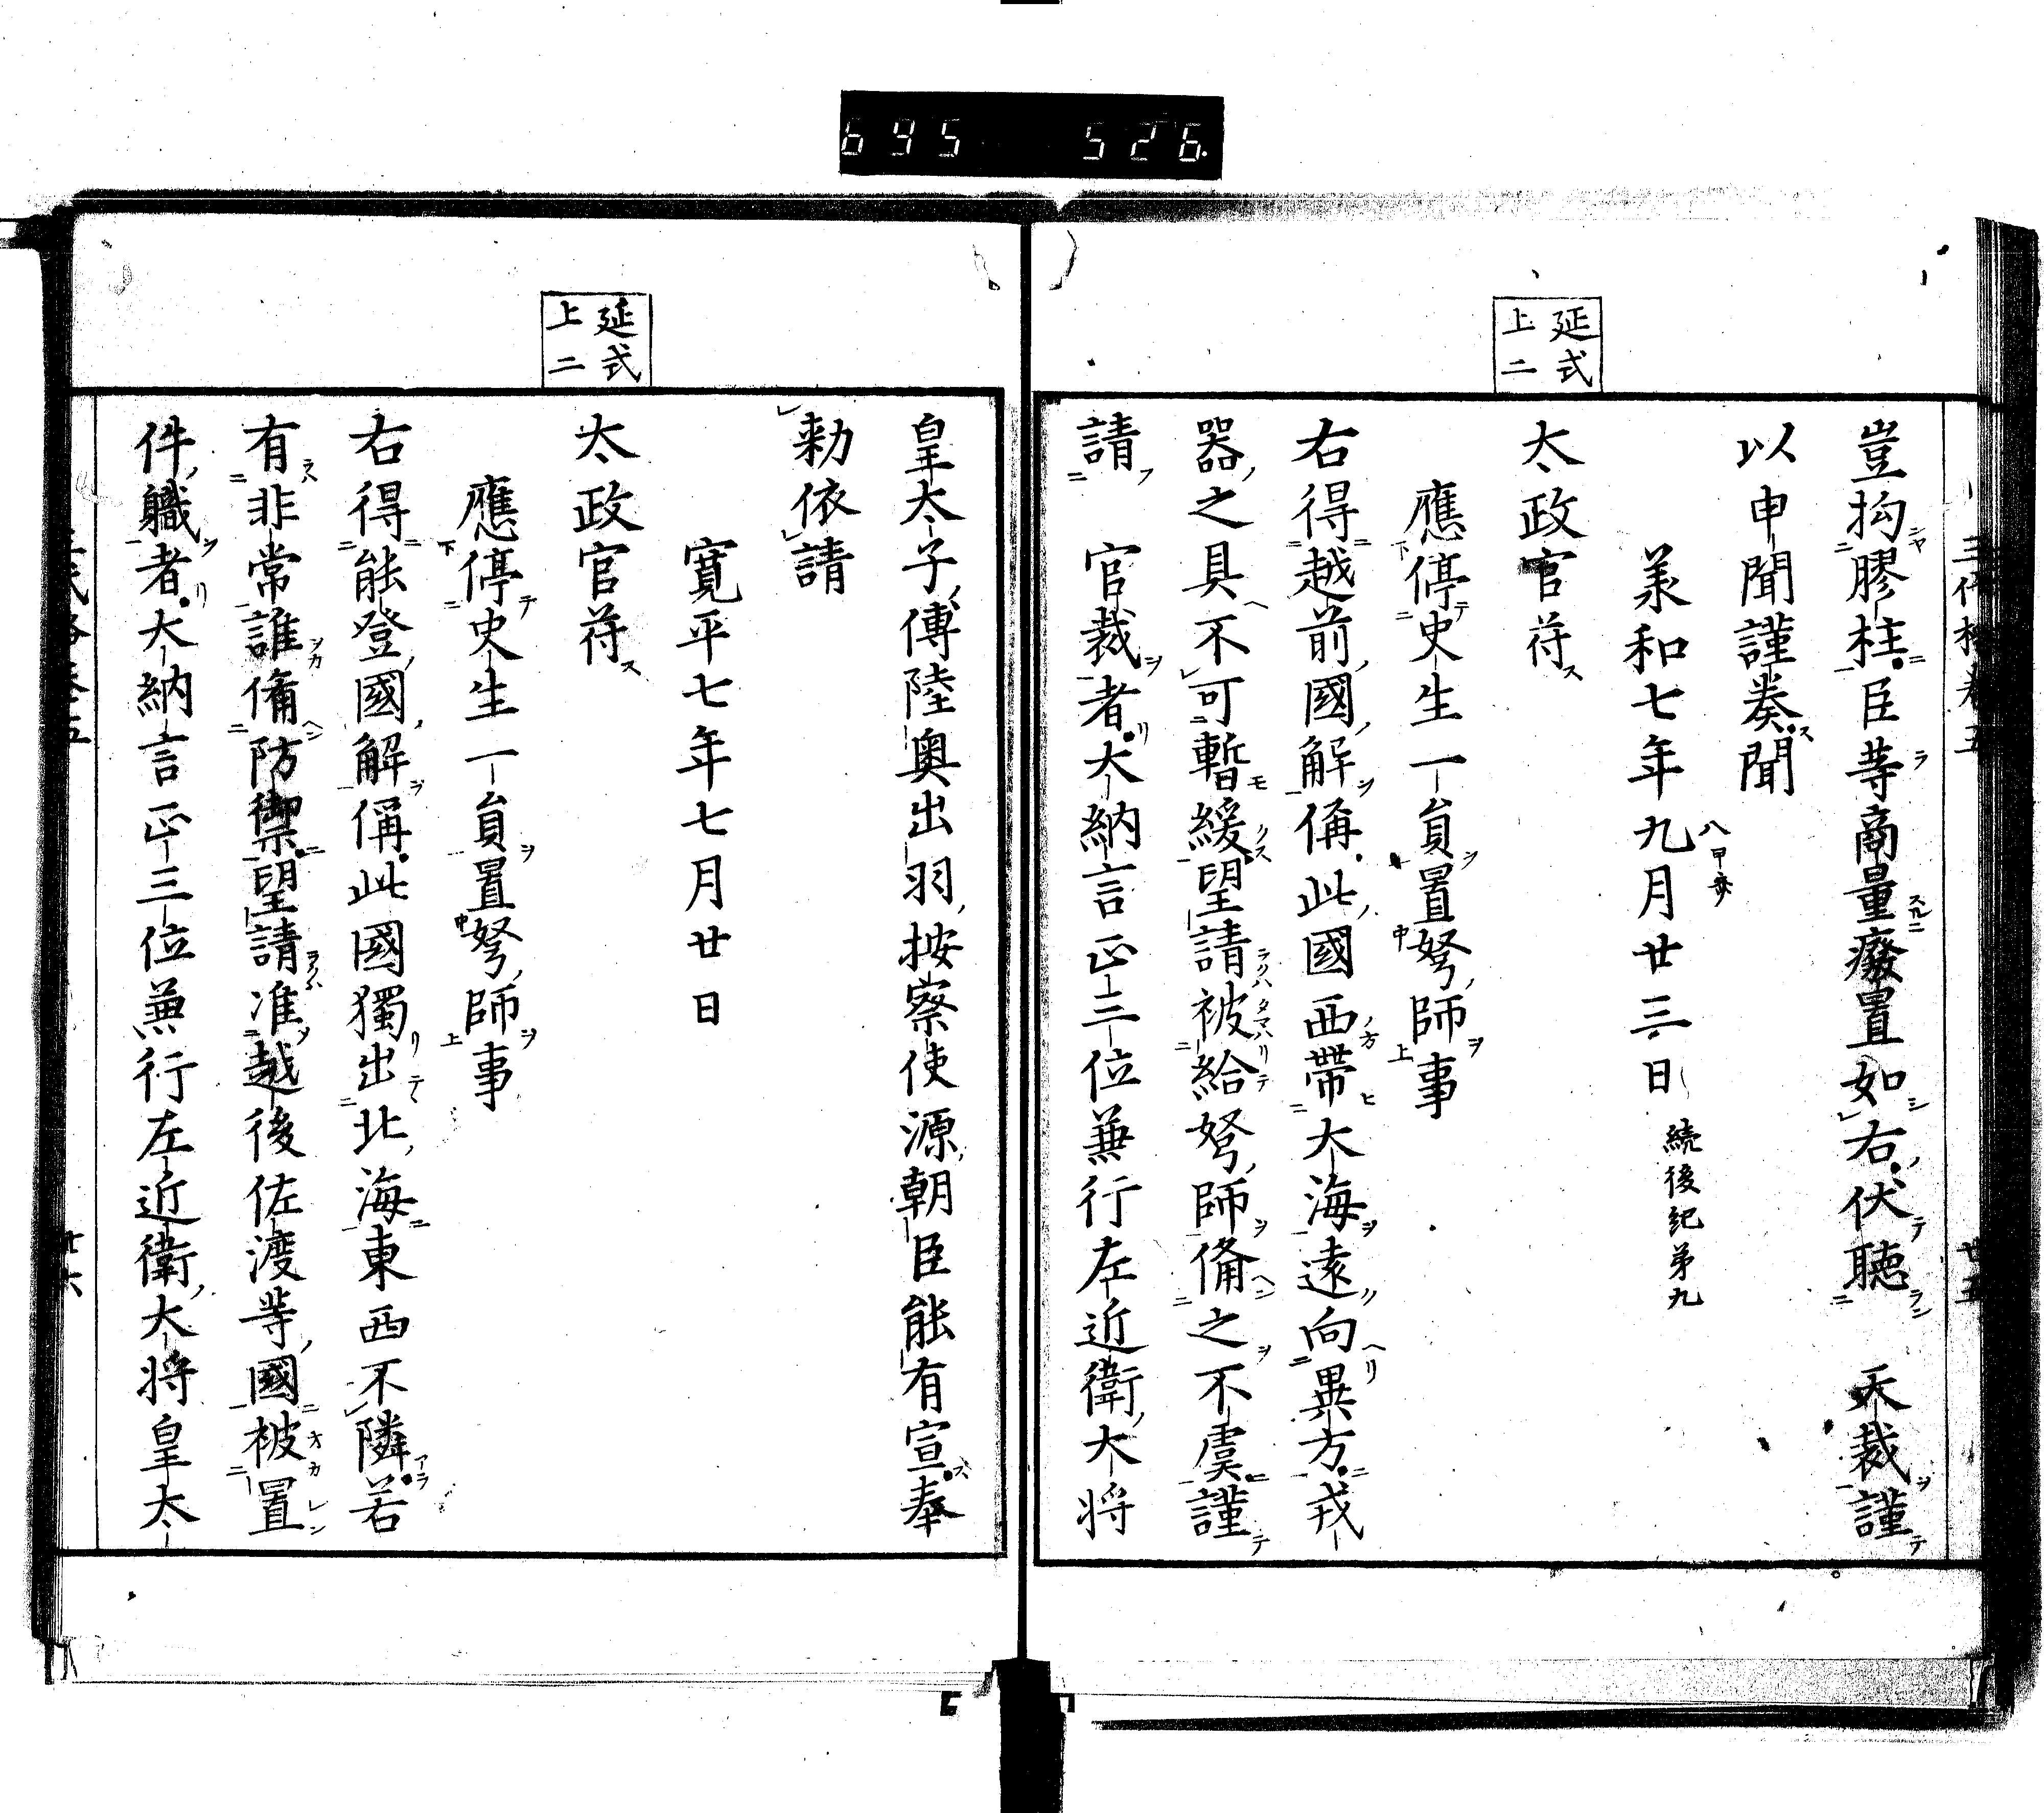 695 526
延式
上二
豈拘膠柱臣等商量廢置如右伏聽　天裁謹
以申聞謹奏聞
羕和七年九月廿三日 続後紀第九
太政官符
應停史生一員置弩師事
右得越前國解偁此國西帶大海遠向異方戎
器之具不可暫緩望請被給弩師備之不虞謹
請　官裁者大納言正三位兼行左近衛大将
延式
上二
皇太子傅陸奥出羽按察使源朝臣能有宣奉
勅依請
寛平七年七月廿日
太政官符
應停史生一員置弩師事
右得能登國解偁此國獨出北海東西不隣若
有非常誰備防禦望請准越後佐渡等國被置
件軄者大納言正三位兼行左近衛大将皇太